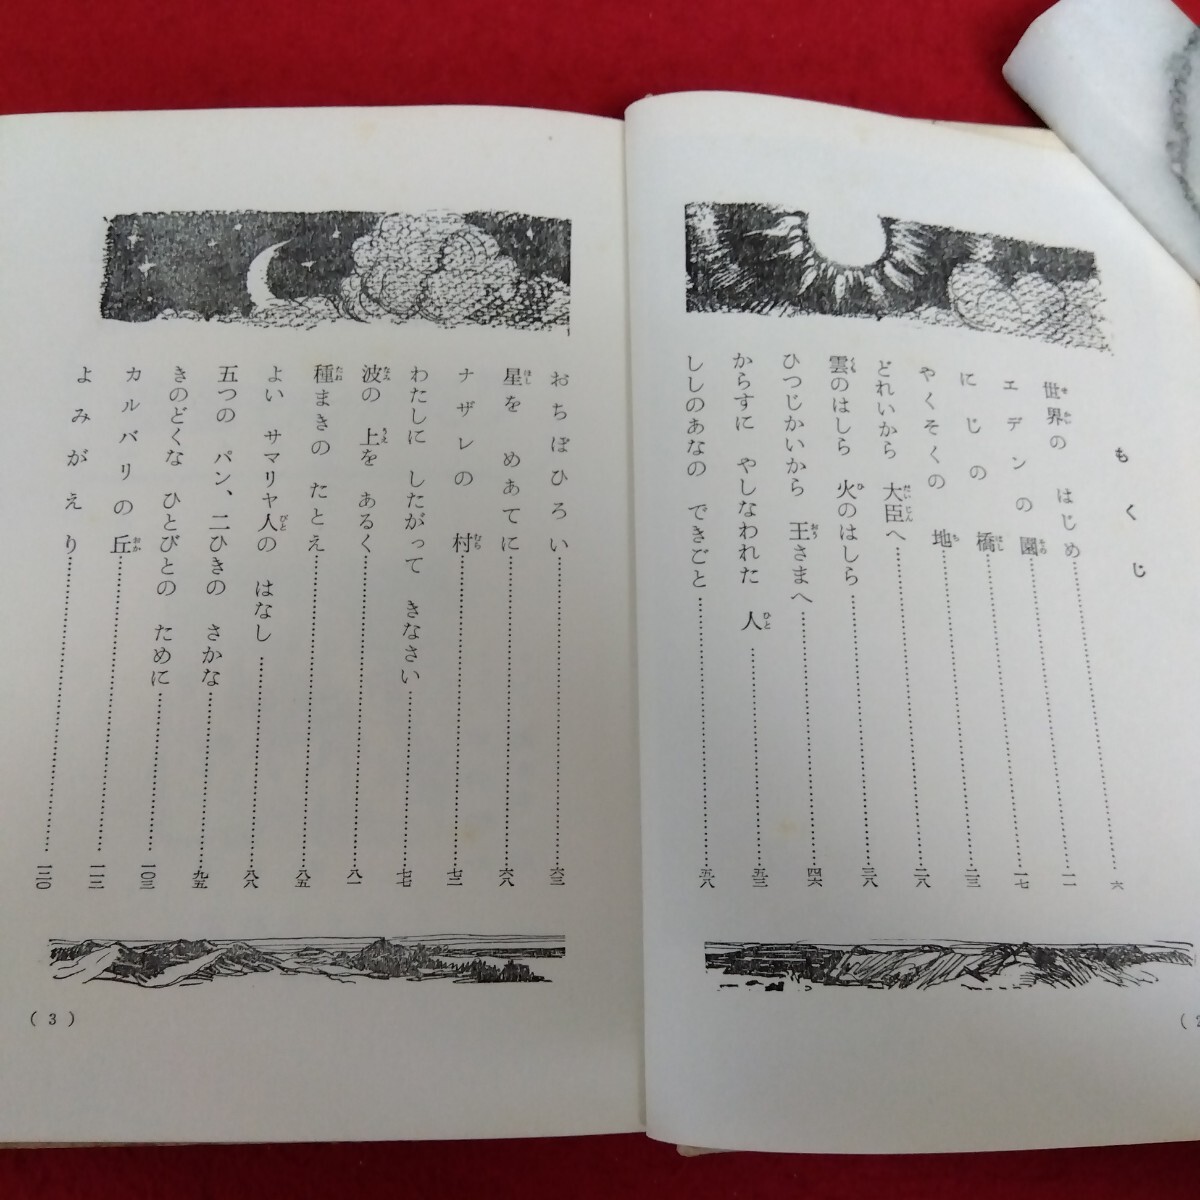 もくじ
世界の はじめ……六
エデンの園……一一
にじの 橋……一七
やくそくの 地……二三
どれいから 大臣へ……二八
雲のはしら 火のはしら……三八
ひつじかいから 王さまへ……四六
からすに やしなわれた 人……五三
ししのあなの できごと……五八
おちぼひろい……六三
星を めあてに……六八
ナザレの 村……七二
わたしに したがって きなさい……七七
波の 上を あるく……八一
種まきの たとえ……八五
よい サマリヤ人の はなし……八八
五つの パン、二ひきの さかな……九五
きのどくな ひとびとの ために……一〇三
カルバリの 丘……一一三
よみがえり……一二〇
( 3 )